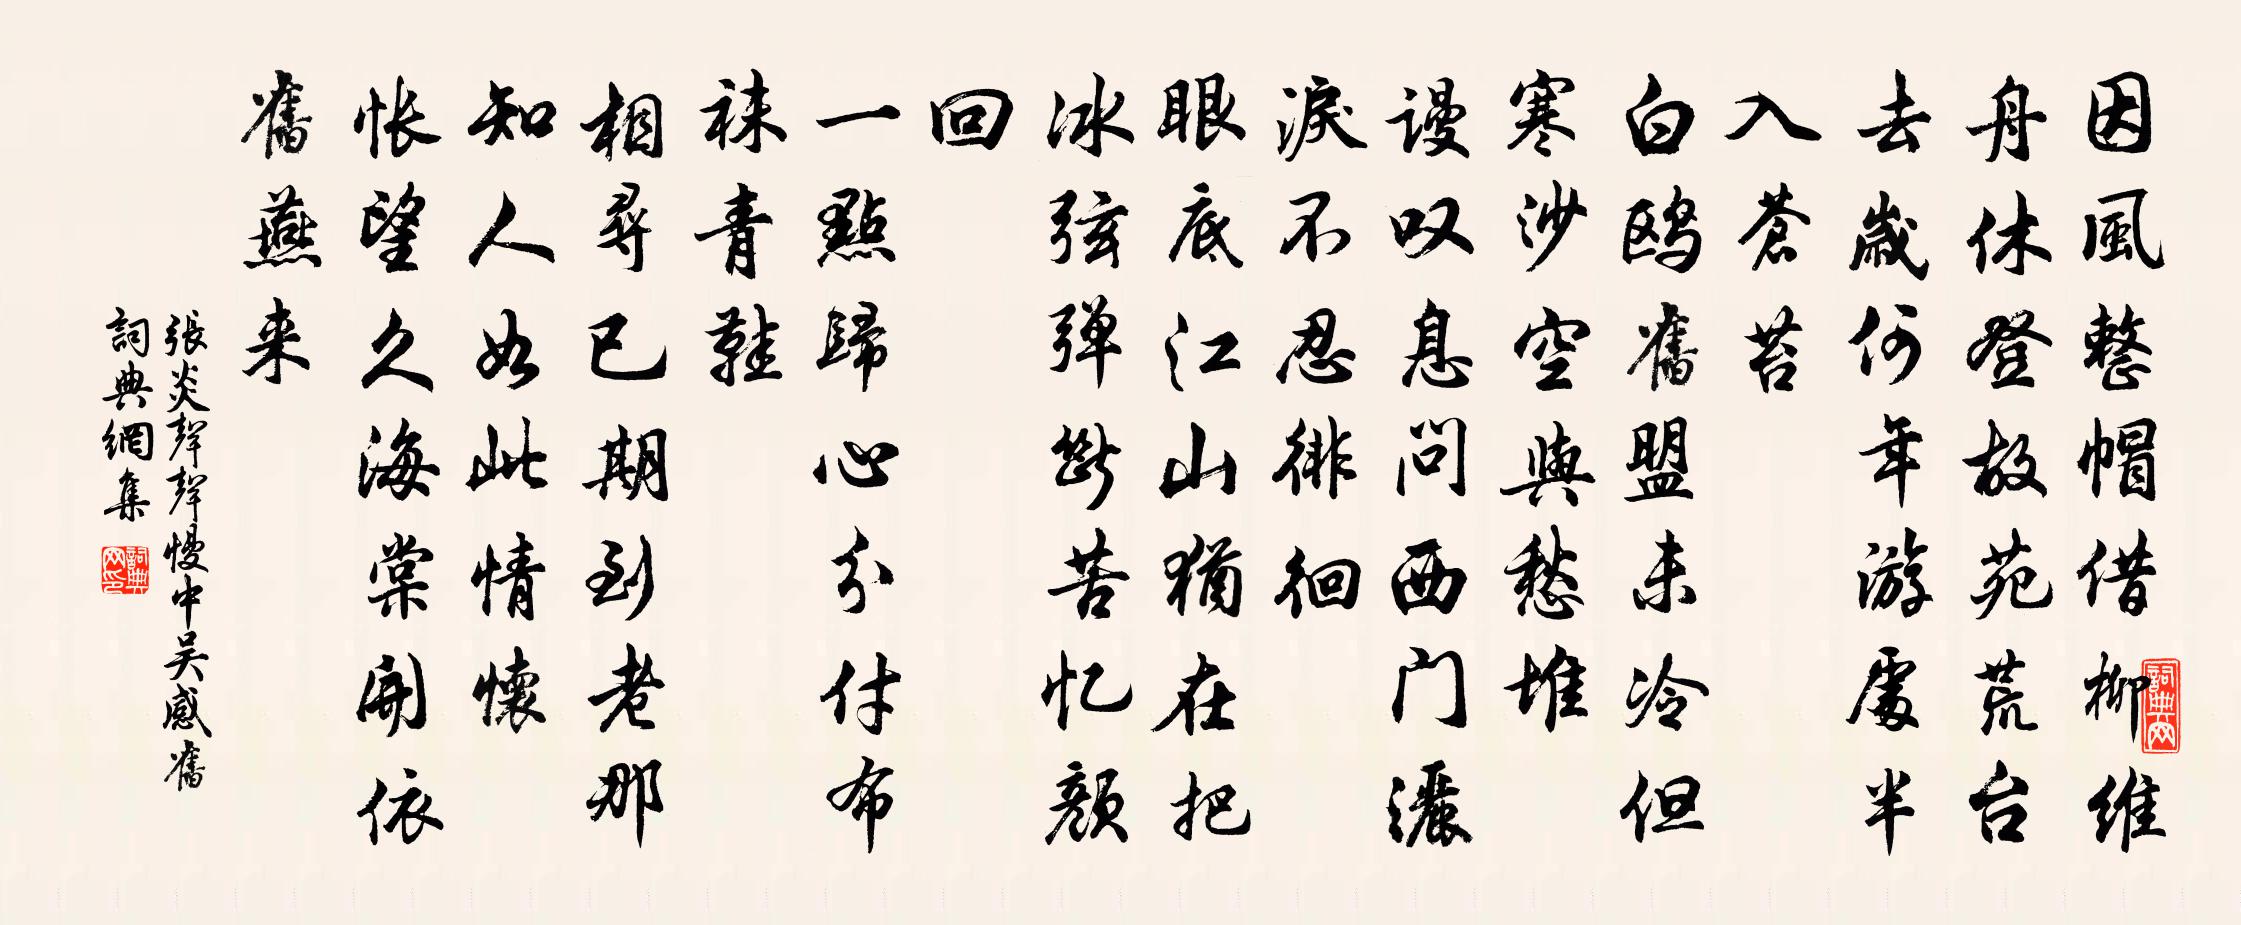 因風整帽借柳維
舟休登故苑荒台
去歲何年游處半
入蒼苔
白鸥舊盟未冷但
寒沙空與愁堆
謾叹息問西门灑
淚不忍徘徊
眼底江山猶在把
冰弦弹斷苦忆顏
回
一點歸心分付布
袜青鞋
相尋已期到老那
知人如此情懷
悵望久海棠開依
舊燕来
張炎聲聲慢中吴感舊
詞典網集
詞典网
詞典网印